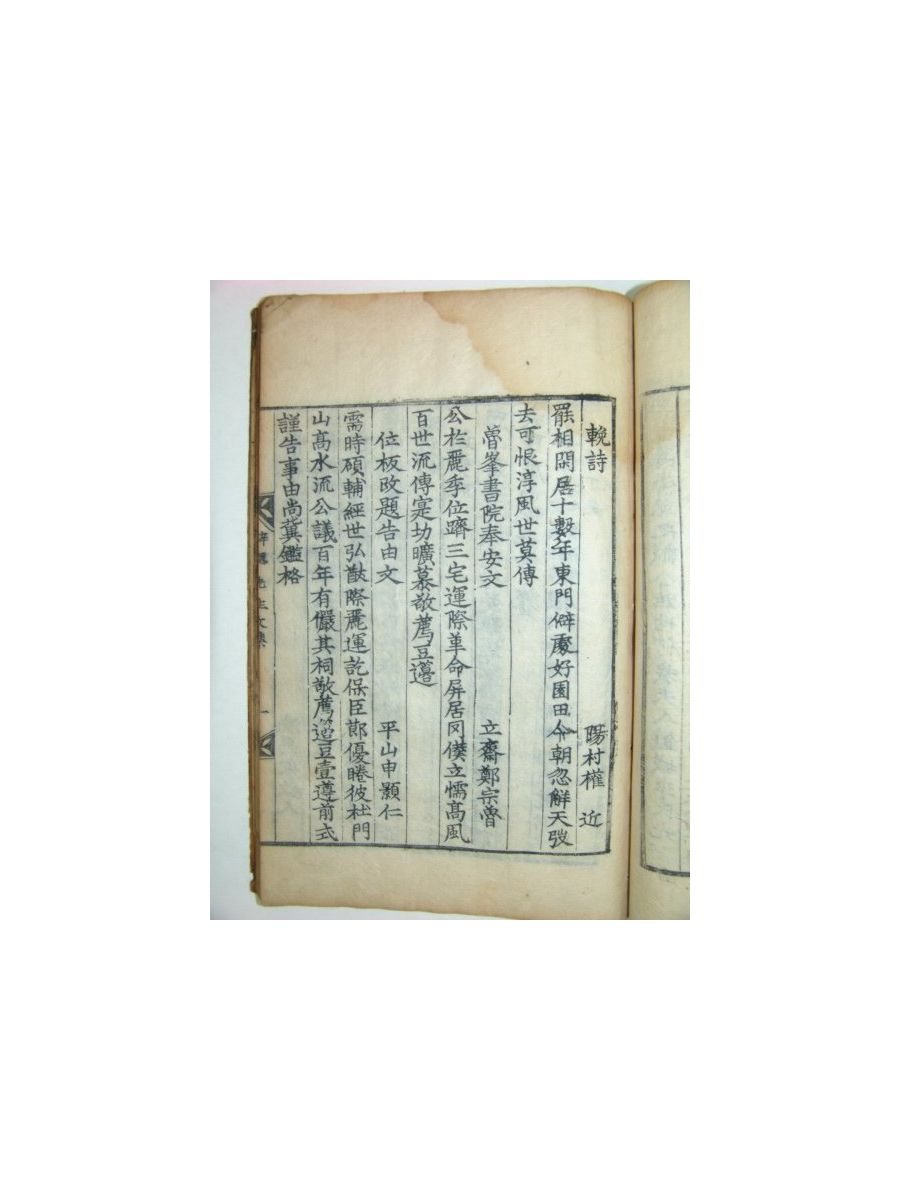 輓詩 陽村權 近
罷相閑居十數年東門僻處好園田今朝忽解天弢
去可恨淳風世莫傳
魯峯書院奉安文 立齋鄭宗魯
公於麗季位躋三宅運際革命屏居罔僕立懦高風
百世流傳寔切曠慕敬薦豆籩
位板改題告由文 平山申顥仁
需時碩輔經世弘猷際麗運訖保臣節優睠彼杜門
山高水流公議百年有儼其祠敬薦籩豆壹遵前式
謹告事由尚冀鑑格
先生文集 一